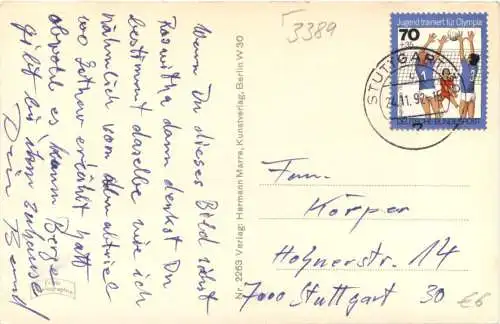 3389
Jugend trainiert für Olympia
70
+35
DEUTSCHE BUNDESPOST
STUTTGART
24.11.92-18
Wenn Du dieses Bild siehst
Roswitha dann denkst Du
bestimmt dasselbe wie ich
nämlich vom
wo erzählt hatt
obwohl es kaum Berge
gibt bis zum zuhause
Dein Bernd
Nr. 2253 Verlag: Hermann Marre, Kunstverlag, Berlin W 30
Fam.
Körper
Hohnerstr. 14
7000 Stuttgart 30
€6